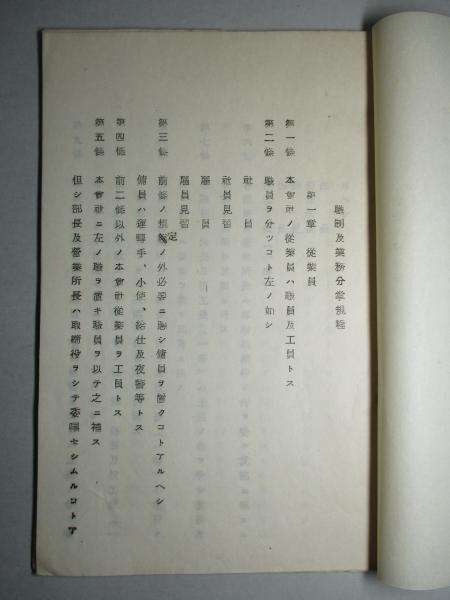 職制及業務分掌規程
第一章 從業員
第一條 本會社ノ從業員ハ職員及工員トス
第二條 職員ヲ分ツコト左ノ如シ
社員
社員見習
雇員
雇員見習
第三條 前條ノ規定ノ外必要ニ應シ傭員ヲ置クコトアルヘシ
傭員ハ運轉手、小使、給仕及夜警等トス
第四條 前二條以外ノ本會社從業員ヲ工員トス
第五條 本會社ニ左ノ職ヲ置キ職員ヲ以テ之ニ補ス
但シ部長及營業所長ハ取締役ヲシテ委囑セシムルコトア